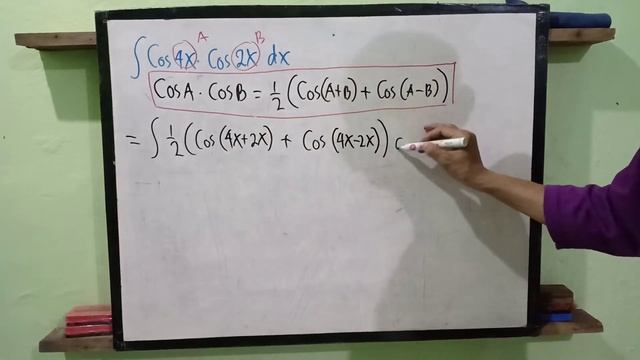 A B
∫ Cos 4x · Cos 2x dx
Cos A · Cos B = 1/2 (Cos(A+B) + Cos(A-B))
= ∫ 1/2 (Cos(4x+2x) + Cos(4x-2x))